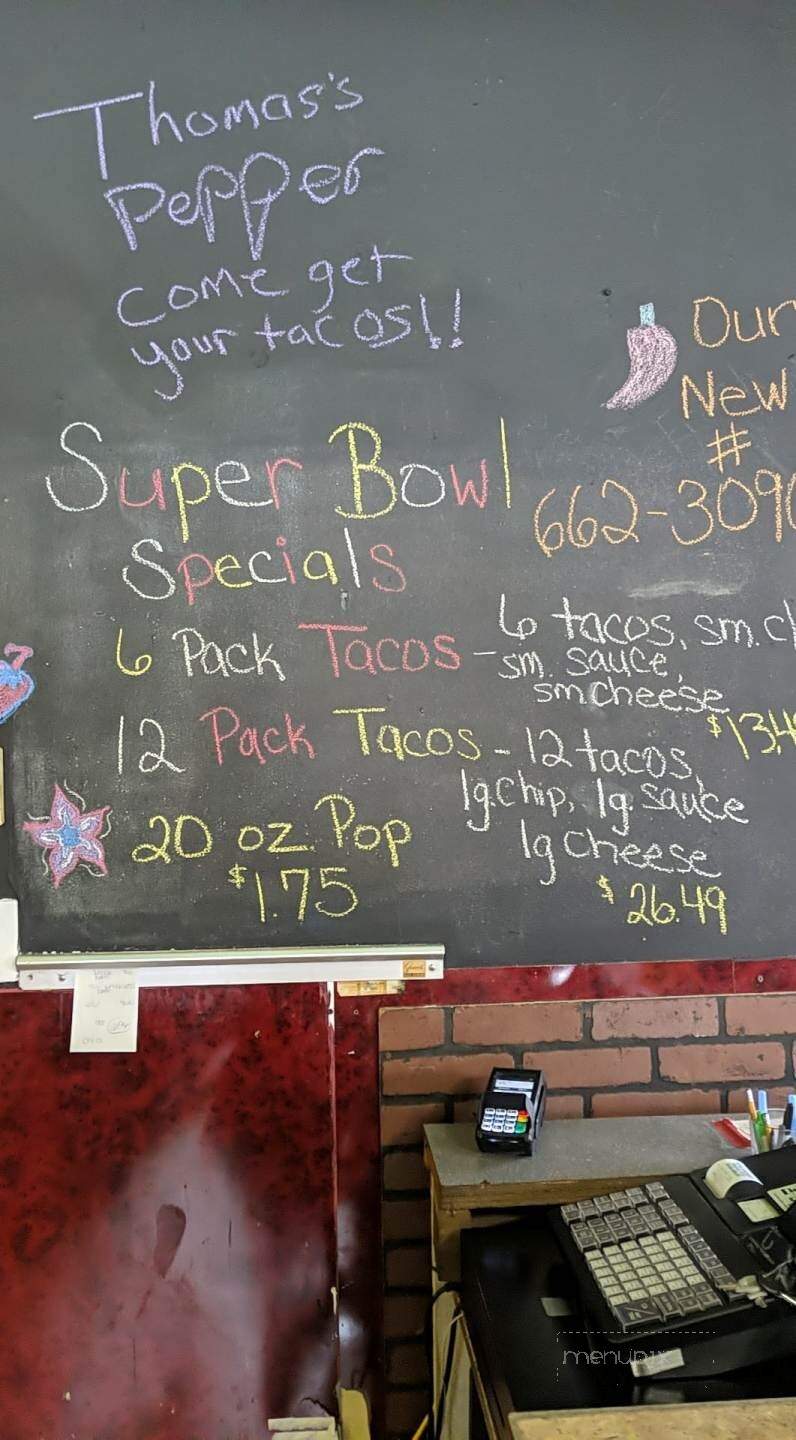 Thomas's
Pepper
come get
your tacos!!
Our
New
#
662-3090
Super Bowl
Specials
6 Pack Tacos - 6 tacos, sm. ch
sm. sauce,
sm cheese
$13.4
12 Pack Tacos - 12 tacos,
lg. chip, lg. sauce
lg cheese
$26.49
20 oz. Pop
$1.75
menupix